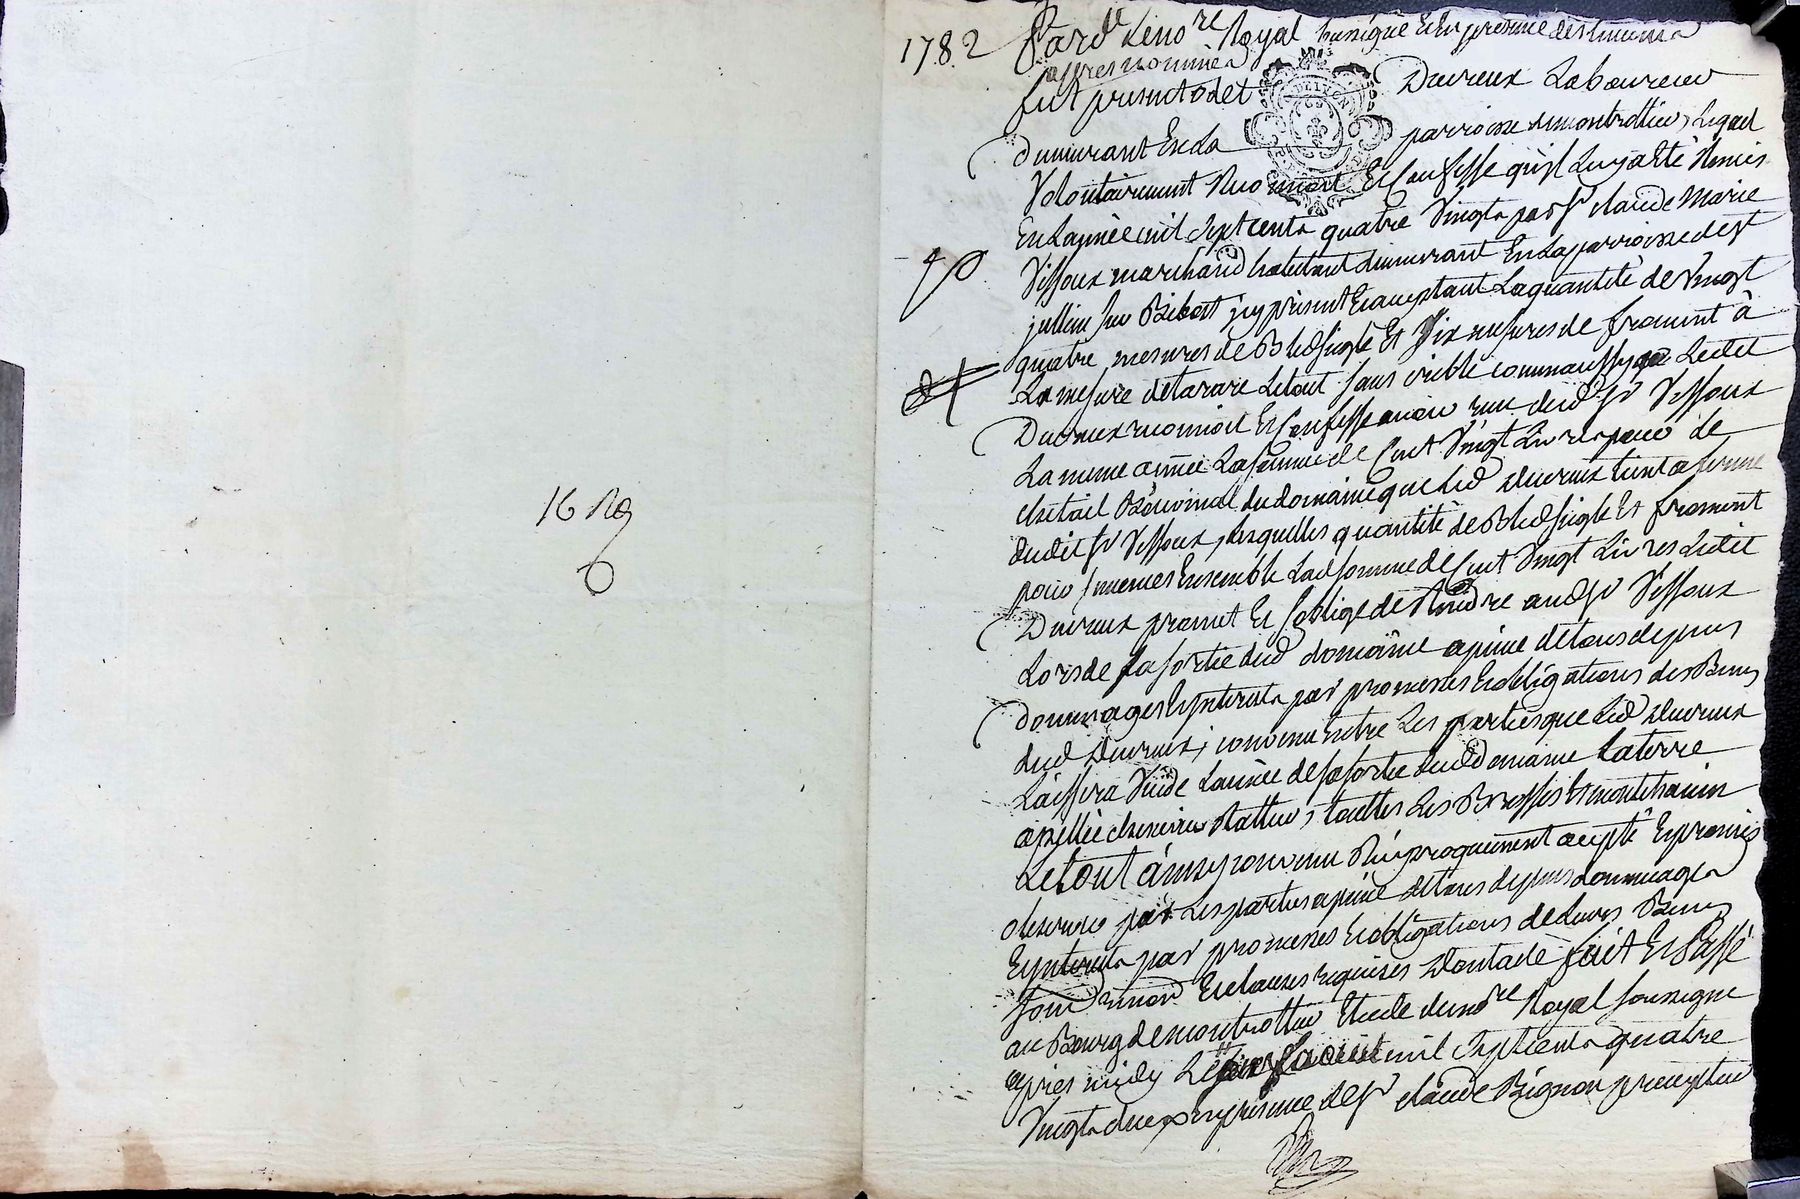 1782 Pard Le nore Royal soussigné Et En presence des temoins
apres nommés
fut present odet Ducreux Laboureur
Demeurant En La parroisse de montrottier, Lequel
Volontairement Reconnoit Et Confesse qu'il Luy a Eté Remis
En L'année mil Sept cents quatre Vingts par Sr claude Marie
Vissoux marchand habitant demeurant En La parroisse de St
jullien sur Bibost jcy present Et acceptant La quantité de Vingt
quatre mesures de Bled seigle Et Six mesures de froment à
La mesure de tarare Le tout sans crible comme aussy Ledit
Ducreux reconnoit Et Confesse avoir recu dud Sr Vissoux
La meme année La somme de Cent Vingt Livres pour de
chetail du domaine que Led Ducreux tient a ferme
dudit Sr Vissoux, Lesquelles quantité de Bled seigle Et froment
pour semences Ensemble Lad somme de Cent Vingt Livres Ledit
Ducreux promet Et S'oblige de Rendre aud Sr Vissoux
Lors de sa sortie dud domaine a peine de tous depens
Dommages Et jnterets par promesses Et obligations des Biens
dud Ducreux; convenu entre Les parties que Led Ducreux
Laissera Vuide L'année de sa sortie dud Domaine La terre
apellée touttes Les
Le tout ainsy convenu Reciproquement accepté Et promis
observer par Les parties a peine de tous depens dommages
Et jnterets par promesses Et obligations de Leurs Biens
Et clauses requises Dont acte fait Et Passé
au Bourg de montrottier Etude du nore Royal soussigné
apres midy Le mil Sept cents quatre
Vingts deux en presence de Sr claude Rignon precepteur
16 Rg